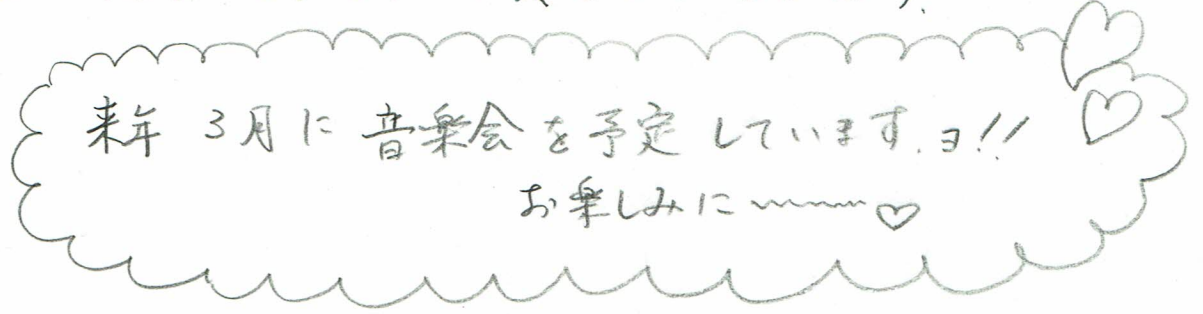 来年 3月に 音楽会を予定しています.ヨ!!
お楽しみに〜〜〜♡